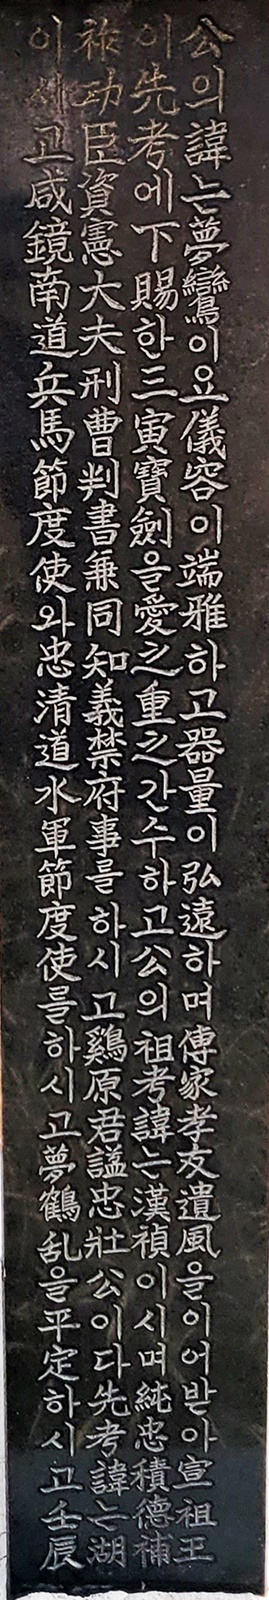 公의諱는夢鸞이요儀容이端雅하고器量이弘遠하며傳家孝友遺風을이어받아宣祖王
이先考에下賜한三寅寶劍을愛之重之간수하고公의祖考諱는漢禎이시며純忠積德補
祚功臣資憲大夫刑曹判書兼同知義禁府事를하시고鷄原君諡忠壯公이다先考諱는湖
이시고咸鏡南道兵馬節度使와忠清道水軍節度使를하시고夢鶴乱을平定하시고壬辰